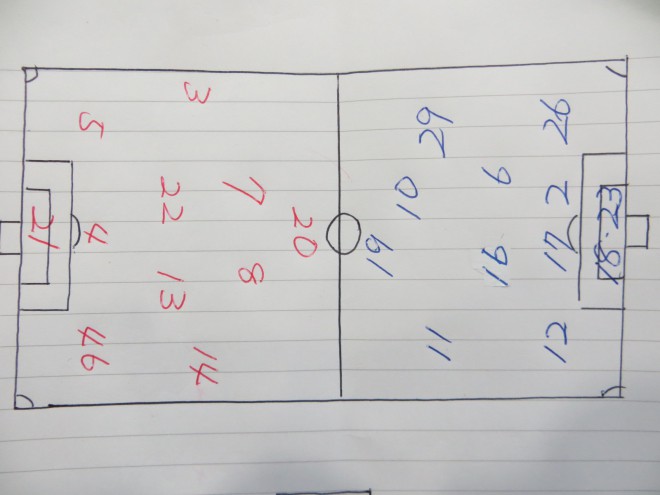 20
7 8
3 22 13 14
5 4 46
21
19
11 10 29
16 6
12 17 2 26
18·23